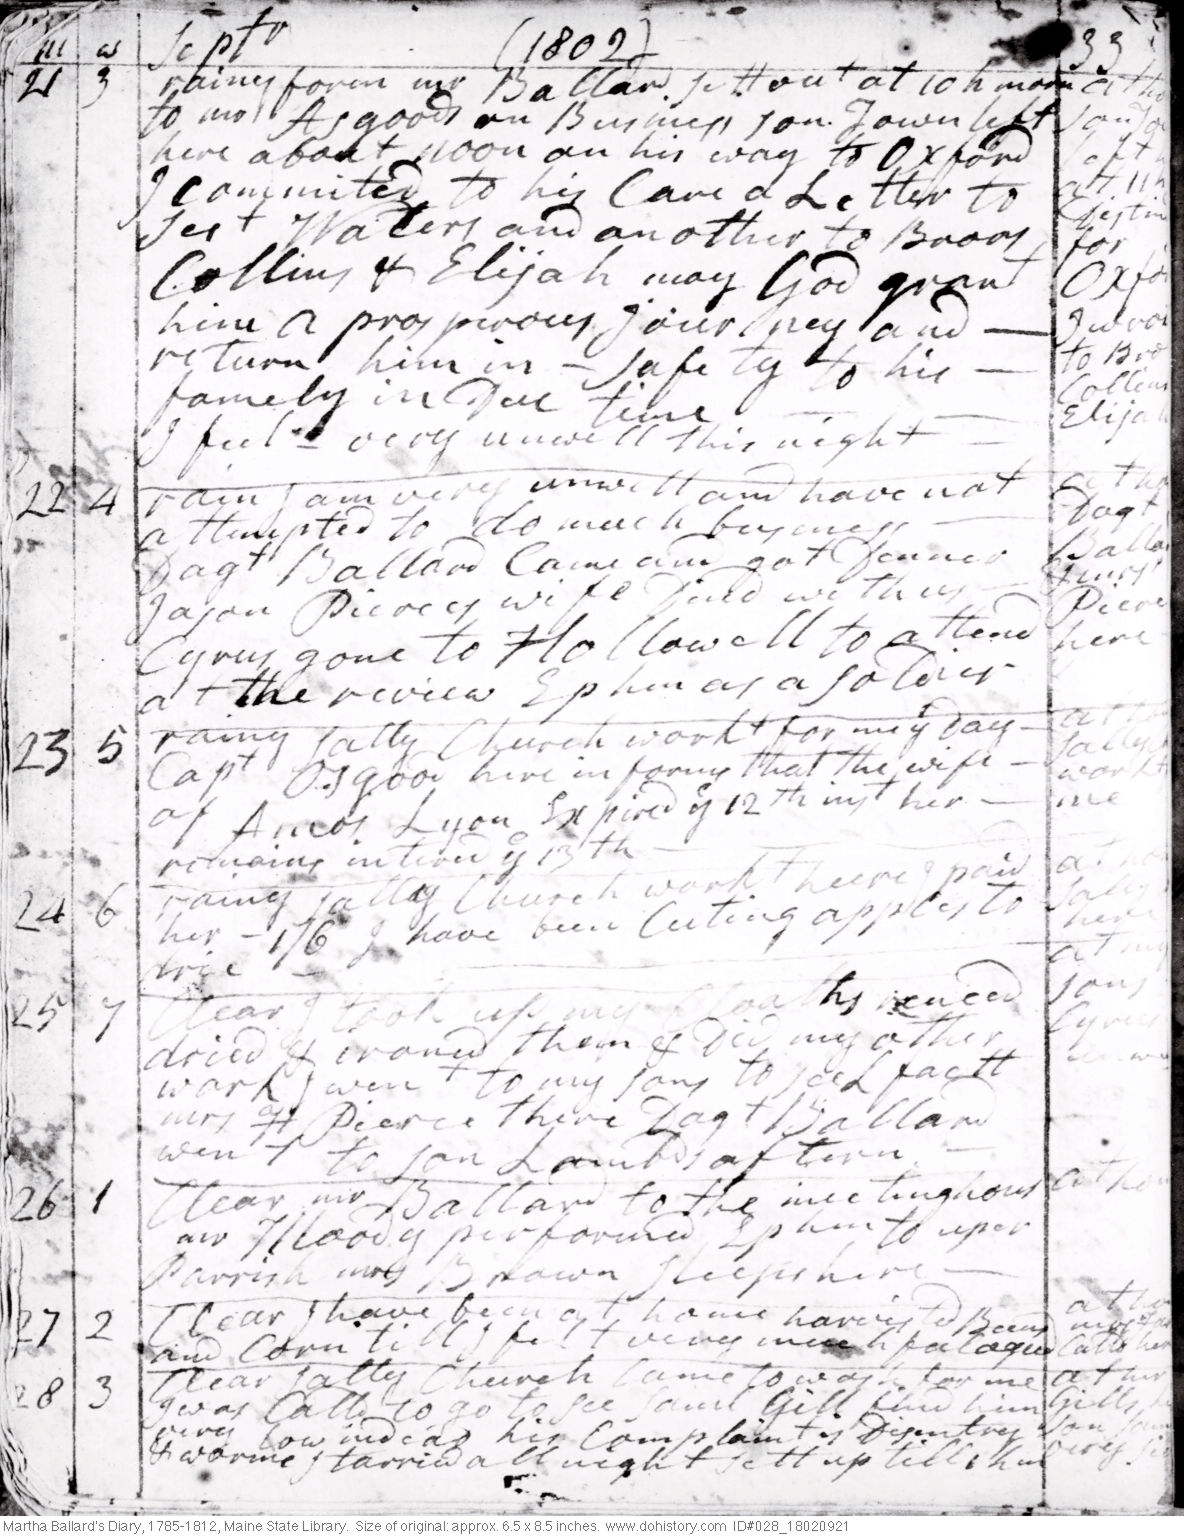 m w Septr (1802) 33
21 3 rainy foren mr Ballard sett out at 10 h morn at ho
to mr Asgoods on Business son Town left Son To
here about noon on his way to Oxford left h
I commited to his Care a Letter to at 11 h
Sest Waters and another to Broos for
Collins & Elijah may God grant Oxfo
him a prosperous journey and — I wro
return him in – safe ty to his — to Bro
famely in Due time — Collins
I feel – very unwell this night — Elijah
22 4 rain I am very unwell and have not at ho
attempted to do much business — Dagt
Dagt Ballard Came and got Dinner Balla
Jason Pierces wife Dined with us — Pierc
Cyrus gone to Hallowell to attend here
at the review Ephm as a soldier
23 5 rainy Sally Church workt for me ÿ Day – at ho
Capt Osgood here informs that the wife – Sally
of Amos Lyon Expired ÿ 12th inst her — workt me
remains intired ÿ 13th —
24 6 rainy Sally Church workt here I paid at hom
her – 1/6 I have been Cuting apples to Sally here
drie —
25 7 Clear I took up my Cloaths renced at my sons
dried & ironed them & Did my other Cyrus
work I went to my sons to see L factt unwe
mrs Pierce there Dagt Ballard
went to son Lambds aftern —
26 1 Clear mr Ballard to the meetinghous at hom
mr Moody performed Ephm to uper
Parrish mrs Brown sleeps here —
27 2 Clear I have been at home harvisted Beens at ho
and Corn till I felt very much fatagued Calld her
28 3 Clear Sally Church Came to wash for me at mr
I was Calld to go to see Saml Gill find him Gills
very low indead his Complaint is Disentry son Sam
& worms I tarried all night sett up till 1 hm very si
Martha Ballard's Diary, 1785-1812, Maine State Library. Size of original: approx. 6.5 x 8.5 inches. www.dohistory.com ID#028_18020921